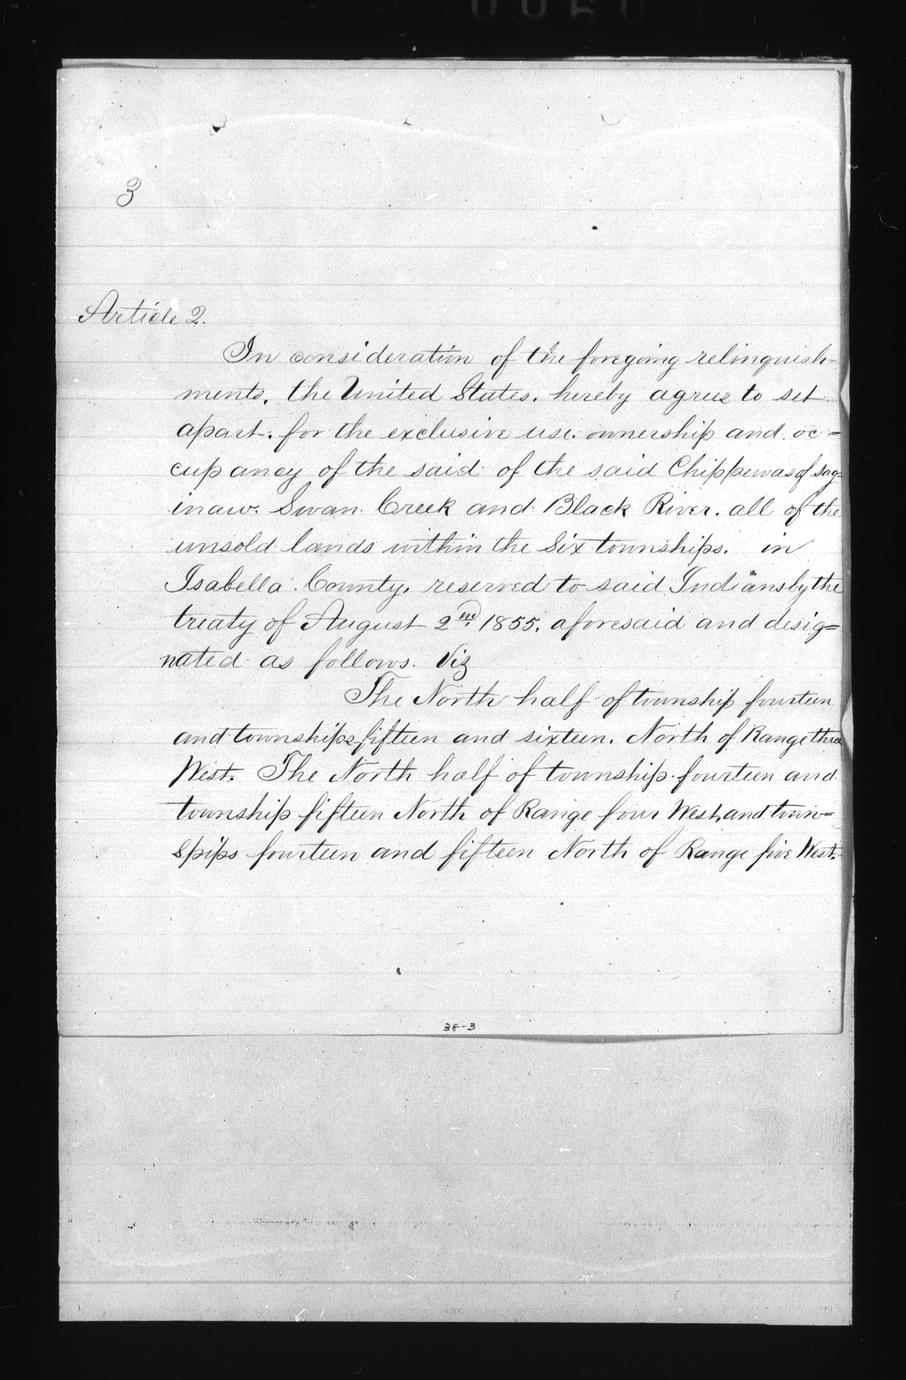 3
Article 2.
In consideration of the foregoing relinquish-
ments, the United States, hereby agrees to set
apart. for the exclusive use. ownership and oc=
cupancy of the said of the said Chippewas of Sag=
inaw. Swan Creek and Black River. all of the
unsold lands within the Six townships. in
Isabella County, reserved to said Indians by the
treaty of August 2nd. 1855. aforesaid and desig=
nated as follows. Viz
The North half of township fourteen
and townships fifteen and sixteen. North of Range three
West. The North half of township fourteen and
township fifteen North of Range four West, and town=
spips fourteen and fifteen North of Range five West.
38-3